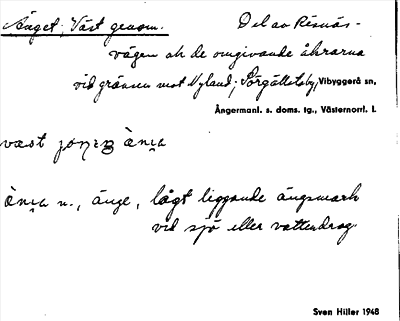 Änget, Väst genom. Del av Risnäs-
vägen ock de omgivande åkrarna
vid gränsen mot Nyland, Sörgällstaby, Vibyggerå sn,
Ångermanl. s. doms. tg., Västernorrl. l.
vast
n., änge, lågt liggande ängsmark
vid sjö eller vattendrag.
Sven Hiller 1948